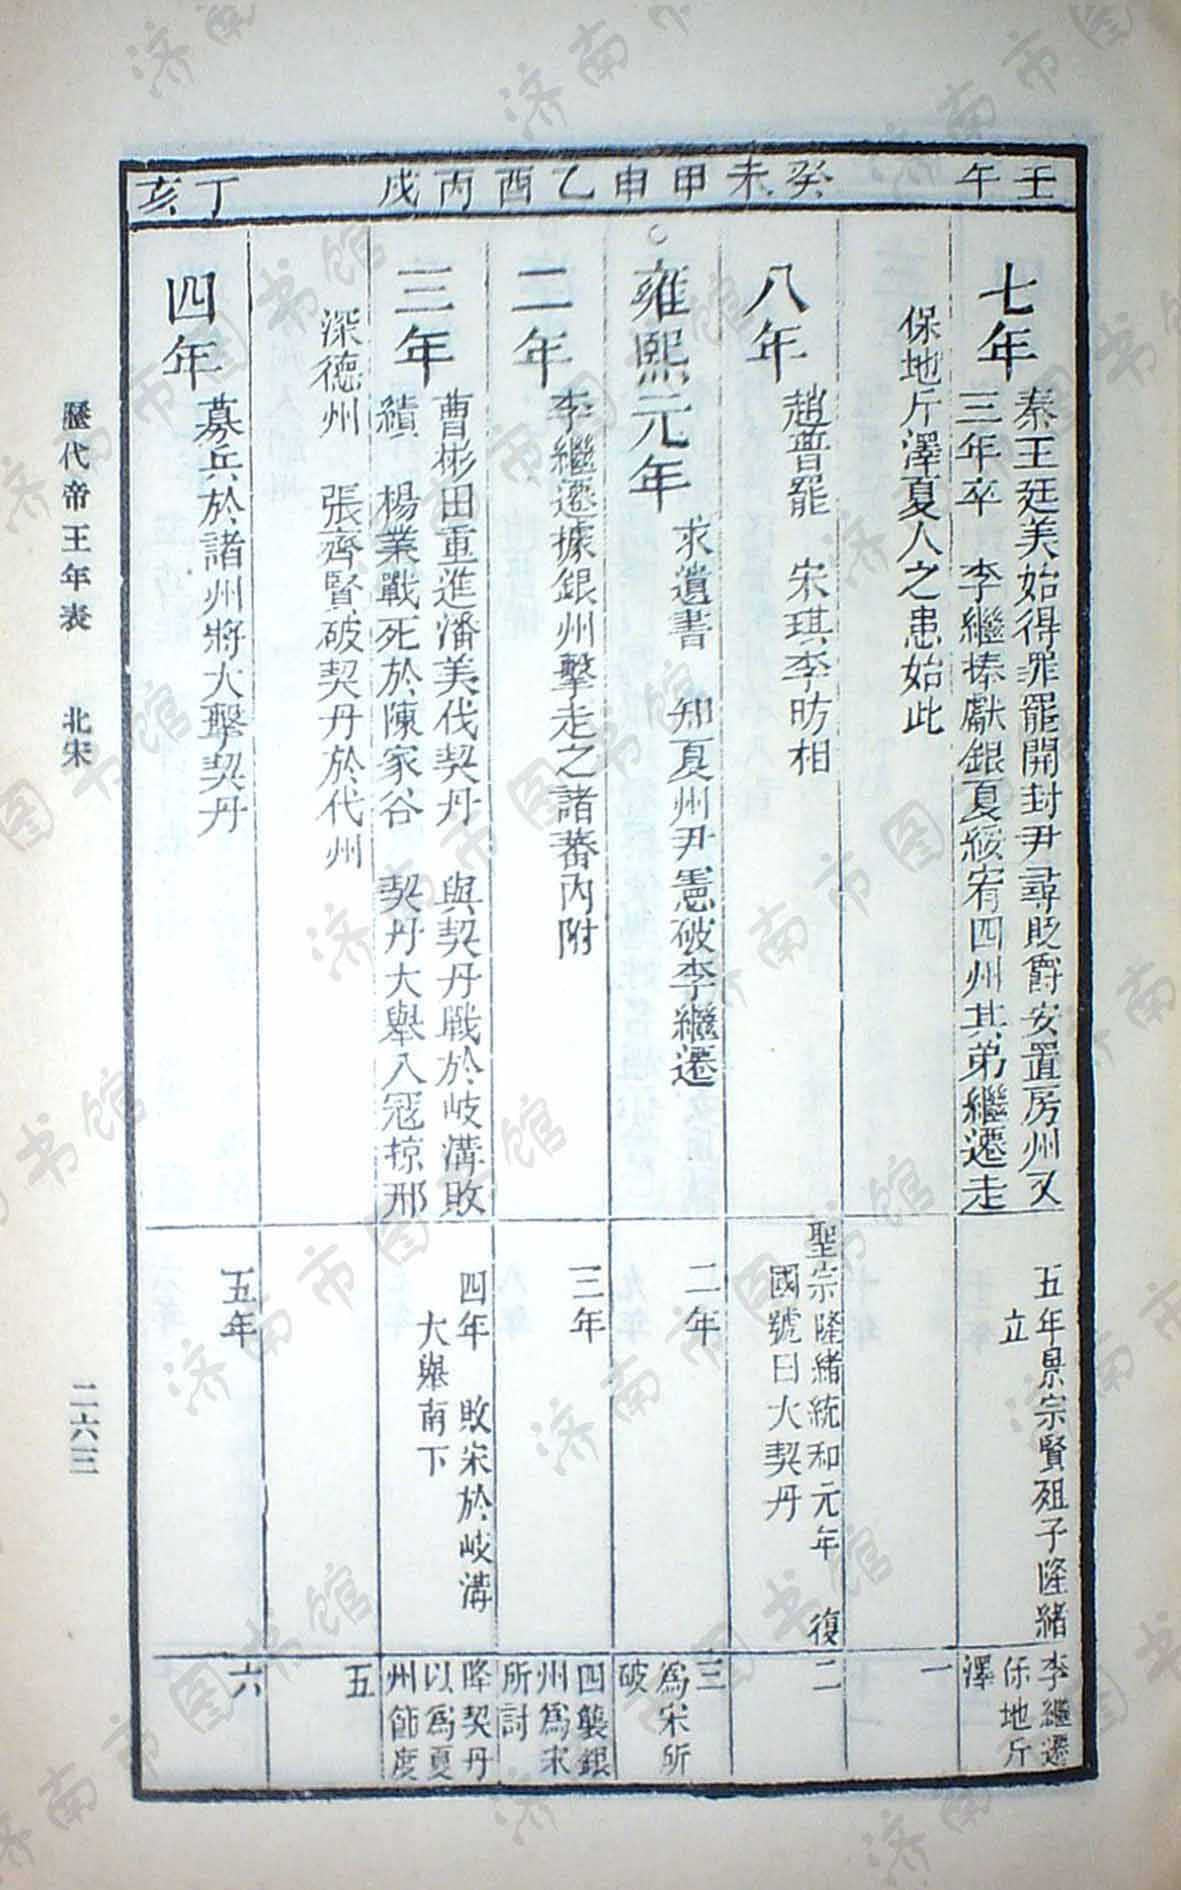 壬午
七年
秦王廷美始得罪罷開封尹尋貶爵安置房州又
三年卒　李繼捧獻銀夏綏宥四州其弟繼遷走
保地斤澤夏人之患始此
五年景宗賢殂子隆緒
立
李繼遷
保地斤
澤
一
癸未
八年
趙普罷　宋琪李昉相
聖宗隆緒統和元年　復
國號曰大契丹
二
甲申
雍熙元年
求遺書　知夏州尹憲破李繼遷
二年
三
爲宋所
破
乙酉
二年
李繼遷據銀州擊走之諸蕃內附
三年
四襲銀
州爲宋
所討
丙戌
三年
曹彬田重進潘美伐契丹　與契丹戰於岐溝敗
績　楊業戰死於陳家谷　契丹大舉入寇掠邢
深德州　張齊賢破契丹於代州
四年　敗宋於岐溝
大舉南下
降契丹
以爲夏
州節度
五
丁亥
四年
募兵於諸州將大擊契丹
五年
六
歷代帝王年表　北宋
二六三
济南市图书馆